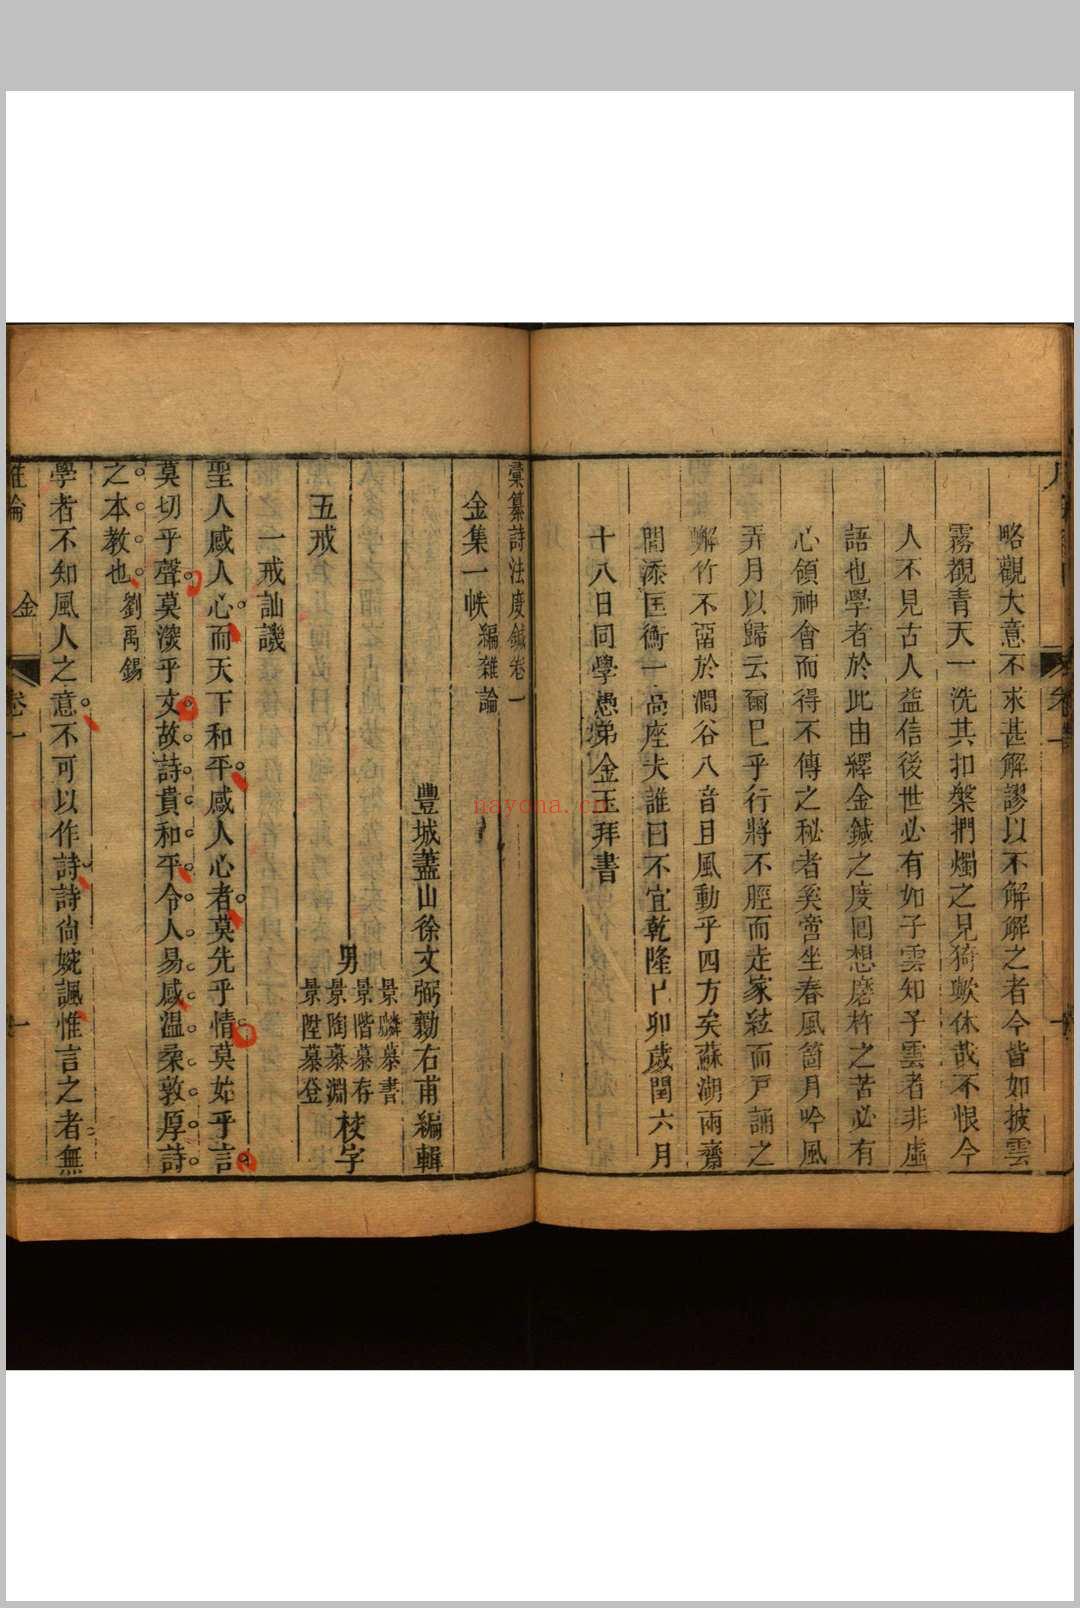 略觀大意不求甚解謬以不解解之者今皆如披雲
霧覩青天一洗其扣槃捫燭之見猗歟休哉不恨今
人不見古人益信後世必有如子雲知子雲者非虛
語也學者於此由繹金鍼之度囘想磨杵之苦必有
心領神會而得不傳之秘者奚啻坐春風箇月吟風
弄月以歸云爾已乎行將不脛而走家絃而戶誦之
嶰竹不啇於澗谷八音且風動乎四方矣蘇湖兩齋
間添匡衡一高座夫誰曰不宜乾隆乙卯歲閏六月
十八日同學愚弟金玉拜書
彙纂詩法度鍼卷一
金集一帙編雜論
豐城蓋山徐文弼勷右甫編輯
男
景麟慕書
景階慕存
景陶慕淵
景陞慕登
校字
五戒
一戒訕譏
聖人感人心而天下和平感人心者莫先乎情莫始乎言
莫切乎聲莫深乎文故詩貴和平令人易感溫柔敦厚詩
之本教也劉禹錫
學者不知風人之意不可以作詩詩尚婉諷惟言之者無
雜論
金
卷一
一
nayona.cn